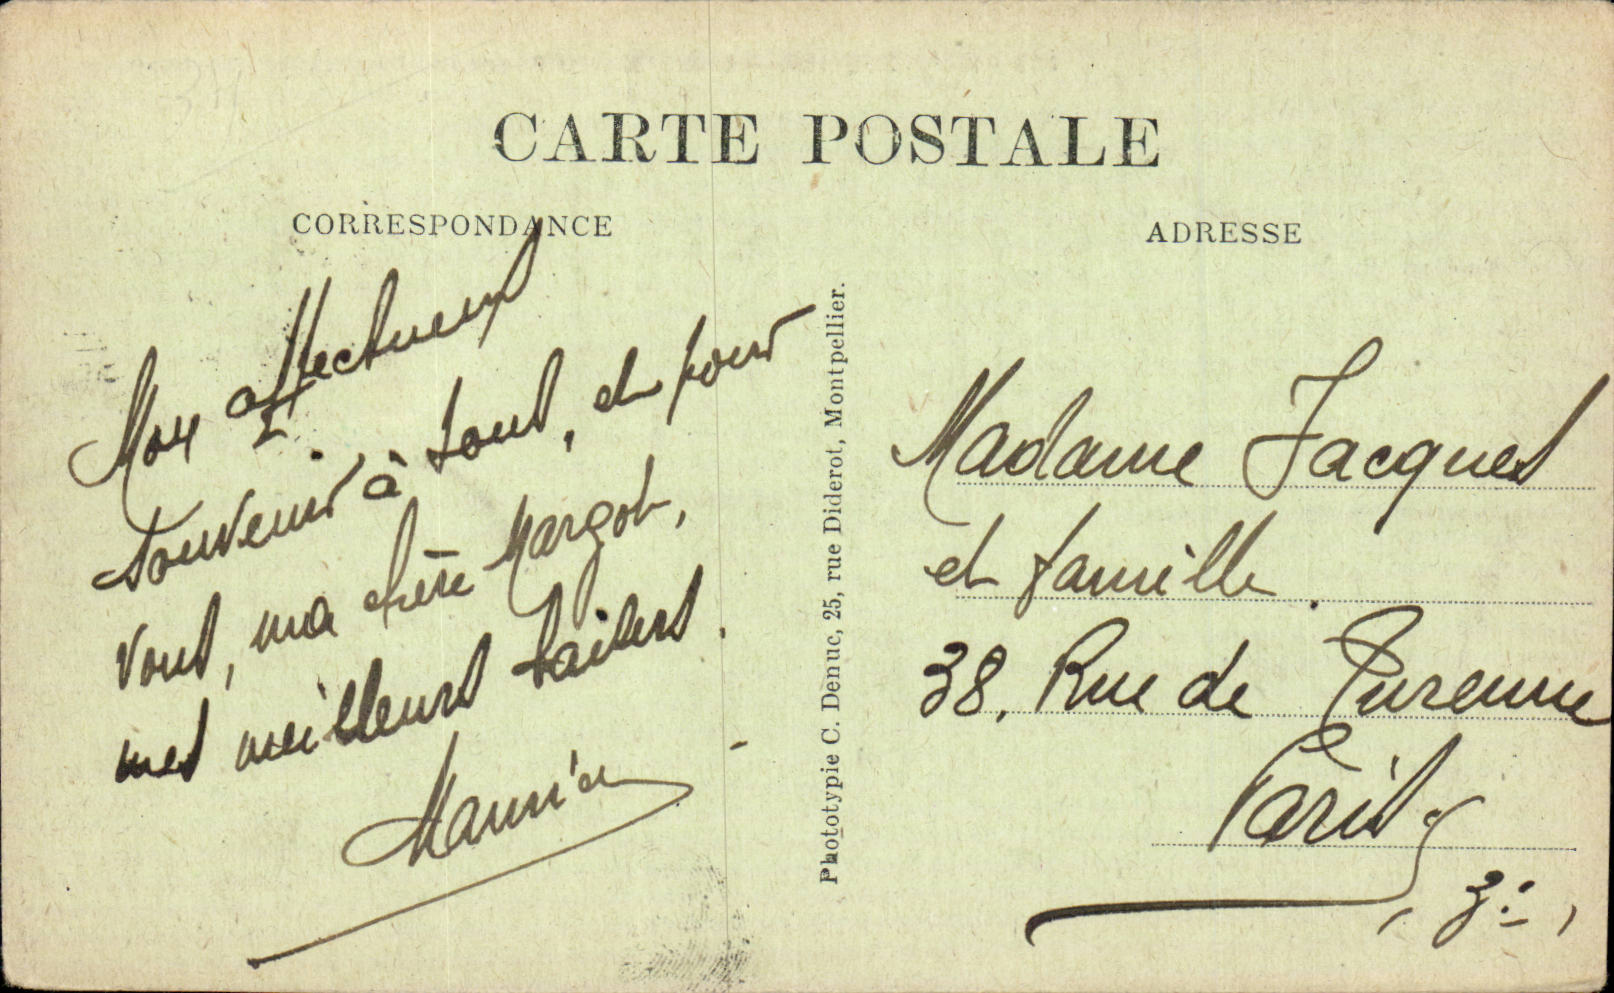 CARTE POSTALE
CORRESPONDANCE
ADRESSE
Mon affectueux
souvenir à tous, et pour
vous, ma chère Margot,
mes meilleurs baisers.
Phototypie C. Denuc, 25, rue Diderot, Montpellier.
Madame Jacques
et famille.
38, Rue de Turenne
Paris
(3e)